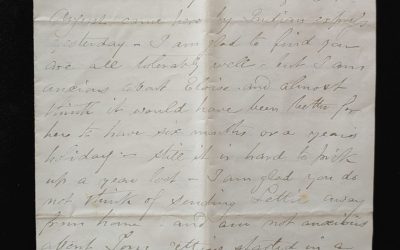 came here by Indian express
yesterday - I am glad to find you
are all tolerably well - but I am
anxious about Eloise and almost
think it would have been better for
her to have six months or a years
holiday - still it is hard to pick
up a year lost - I am glad you do
not think of sending Lettie away
from home and am not anxious
about your getting started in a